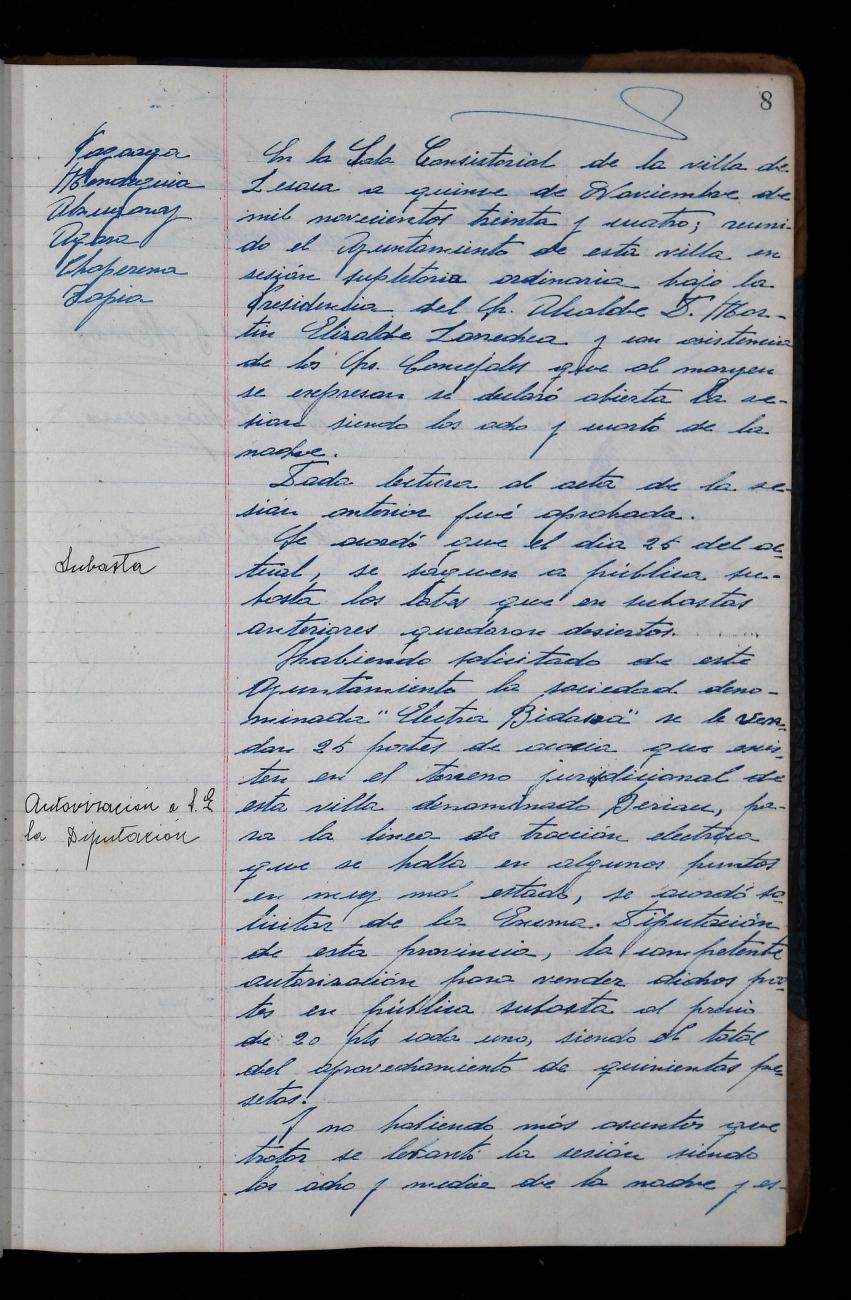 8
Mendaguia
Chaperena
Tapia
En la Sala Consistorial de la villa de
Lesaca a quince de Noviembre de
mil novecientos treinta y cuatro; reuni-
do el Ayuntamiento de esta villa en
sesión supletoria ordinaria bajo la
Presidencia del Sr. Alcalde D. Mar-
tin Elizalde y con asistencia
de los Srs. Concejales que al margen
se expresan se declaró abierta la se-
sion siendo las ocho y cuarto de la
noche.
Dada lectura al acta de la se-
sión anterior fué aprobada.
Subasta
Se acordó que el dia 25 del ac-
tual, se sáquen a pública su-
basta los lotes que en subastas
anteriores quedaron desiertos.
Habiendo solicitado de este
Ayuntamiento la sociedad deno-
minada "Electra Bidasoa" se le ven-
dan 25 postes de acacia que exis-
ten en el terreno juridicional de
Autorización a S.E
la Diputación
esta villa denominado Berian, pa-
ra la linea de tracción electrica
que se halla en algunos puntos
en muy mal estado, se acordó so-
licitar de la Excma. Diputación
de esta provincia, la competente
autorización para vender dichos pos-
tes en pública subasta al precio
de 20 pts cada uno, siendo el total
del aprovechamiento de quinientas pe-
setas.
Y no habiendo más asuntos que
tratar se levantó la sesión siendo
las ocho y media de la noche y es-